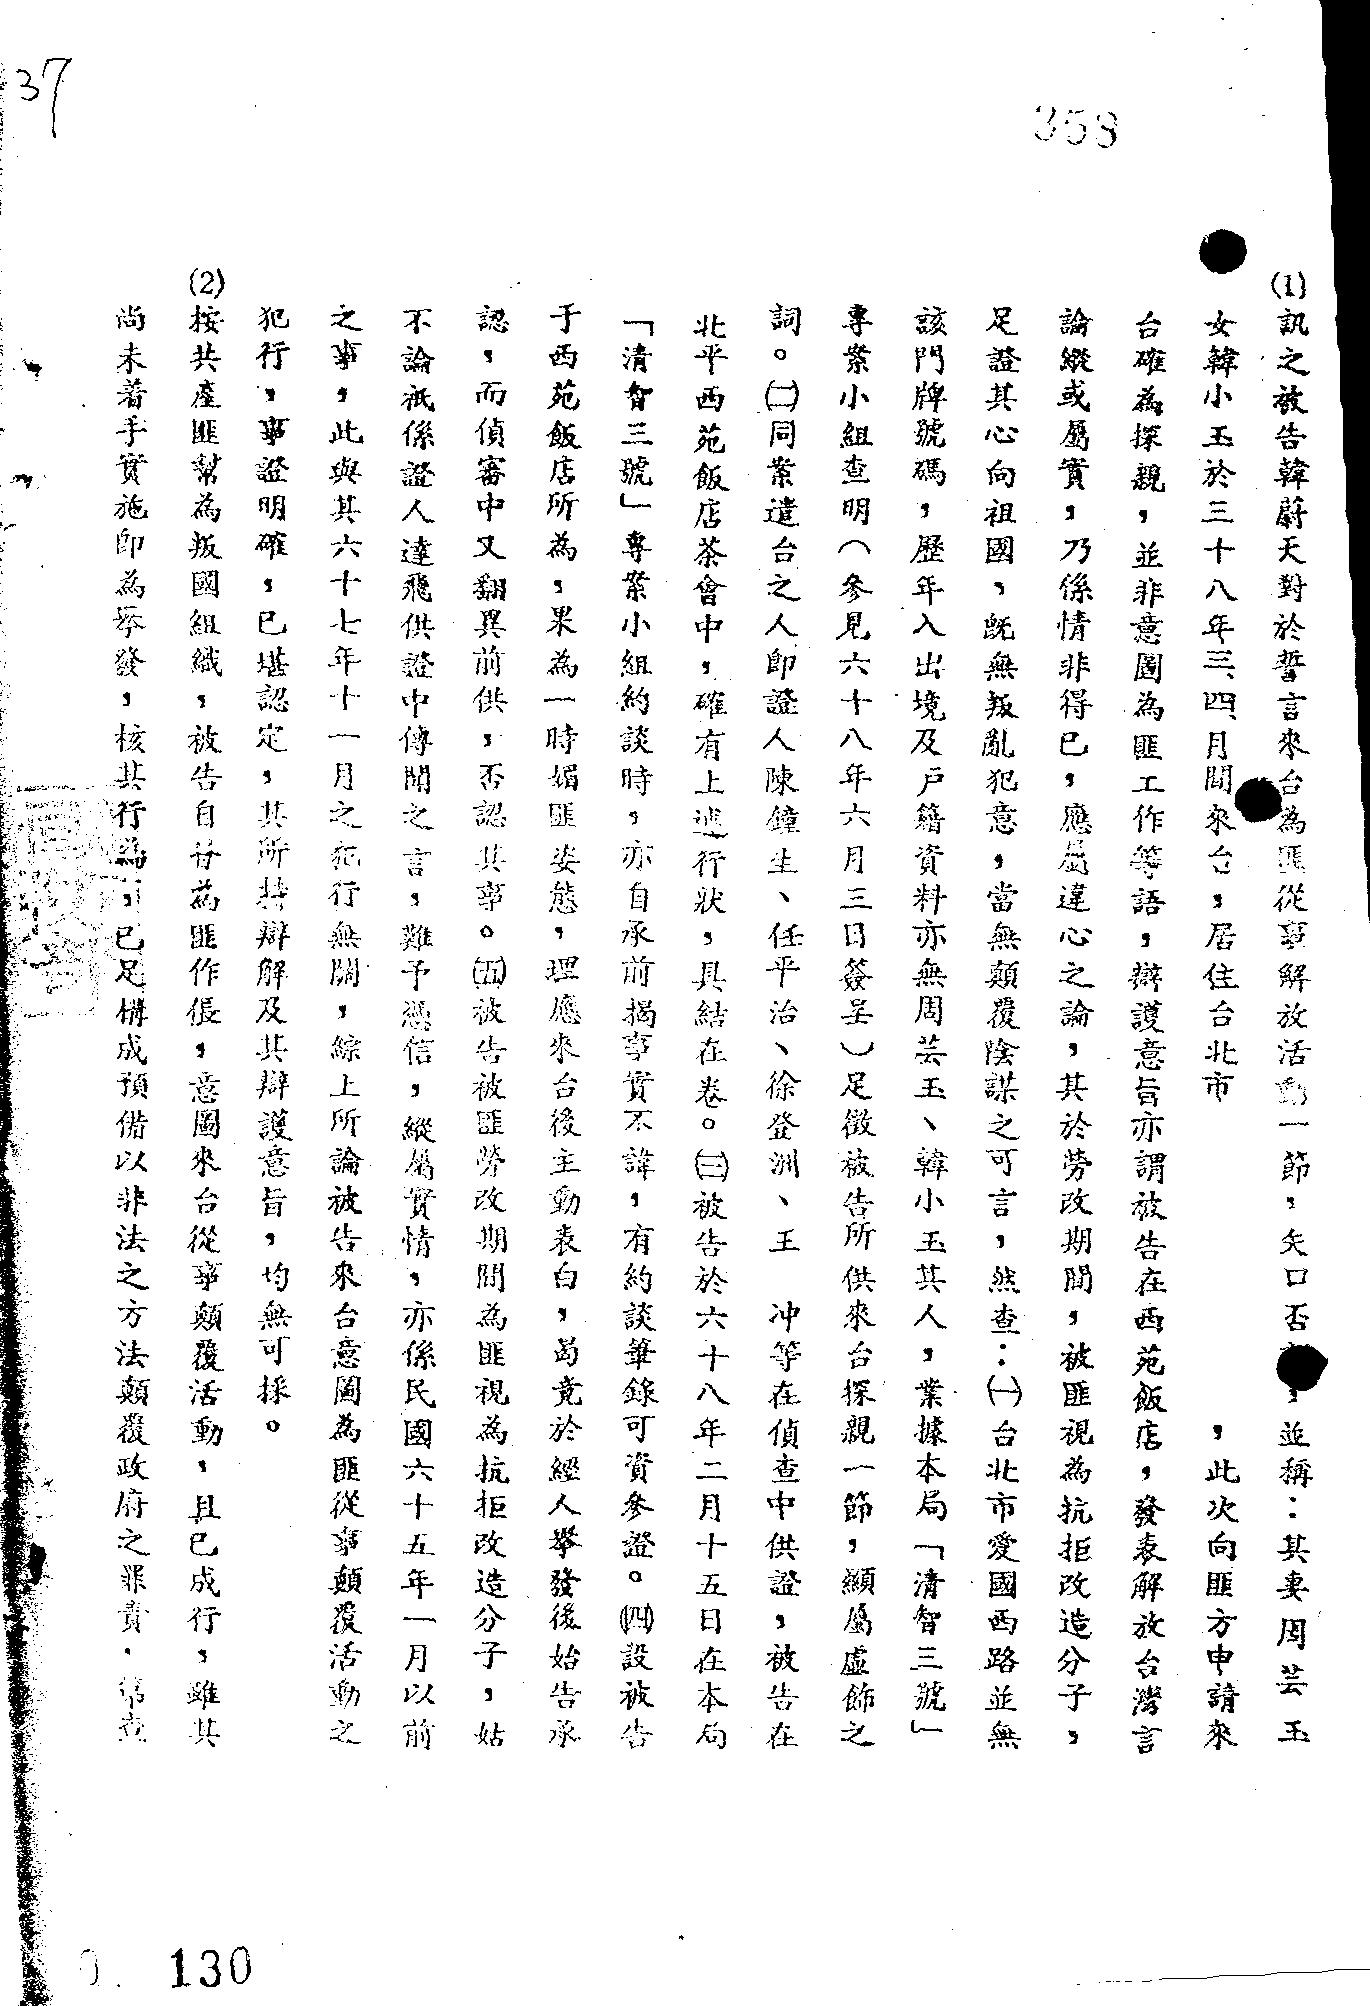 37
358
(1)訊之被告韓蔚天對於誓言來台為匪從事解放活動一節，矢口否，並稱：其妻周芸玉
女韓小玉於三十八年三、四月間來台，居住台北市　　　　　　　，此次向匪方申請來
台確為探親，並非意圖為匪工作等語，辯護意旨亦謂被告在西苑飯店，發表解放台灣言
論縱或屬實，乃係情非得已，應屬違心之論，其於勞改期間，被匪視為抗拒改造分子，
足證其心向祖國，既無叛亂犯意，當無顛覆陰謀之可言，然查：㈠台北市愛國西路並無
該門牌號碼，歷年入出境及戶籍資料亦無周芸玉、韓小玉其人，業據本局「清智三號」
專案小組查明（參見六十八年六月三日簽呈）足徵被告所供來台探親一節，顯屬虛飾之
詞。㈡同案遣台之人即證人陳鐘生、任平治、徐登洲、王　冲等在偵查中供證，被告在
北平西苑飯店茶會中，確有上述行狀，具結在卷。㈢被告於六十八年二月十五日在本局
「清智三號」專案小組約談時，亦自承前揭事實不諱，有約談筆錄可資參證。㈣設被告
于西苑飯店所為，果為一時媚匪姿態，理應來台後主動表白，曷竟於經人舉發後始告承
認，而偵審中又翻異前供，否認其事。㈤被告被匪勞改期間為匪視為抗拒改造分子，姑
不論祇係證人達飛供證中傳聞之言，難予憑信，縱屬實情，亦係民國六十五年一月以前
之事，此與其六十七年十一月之犯行無關，綜上所論被告來台意圖為匪從事顛覆活動之
犯行，事證明確，已堪認定，其所持辯解及其辯護意旨，均無可採。
(2)按共產匪幫為叛國組織，被告自甘為匪作倀，意圖來台從事顛覆活動，且已成行，雖其
尚未着手實施即為舉發，核其行為，已足構成預備以非法之方法顛覆政府之罪責，
130